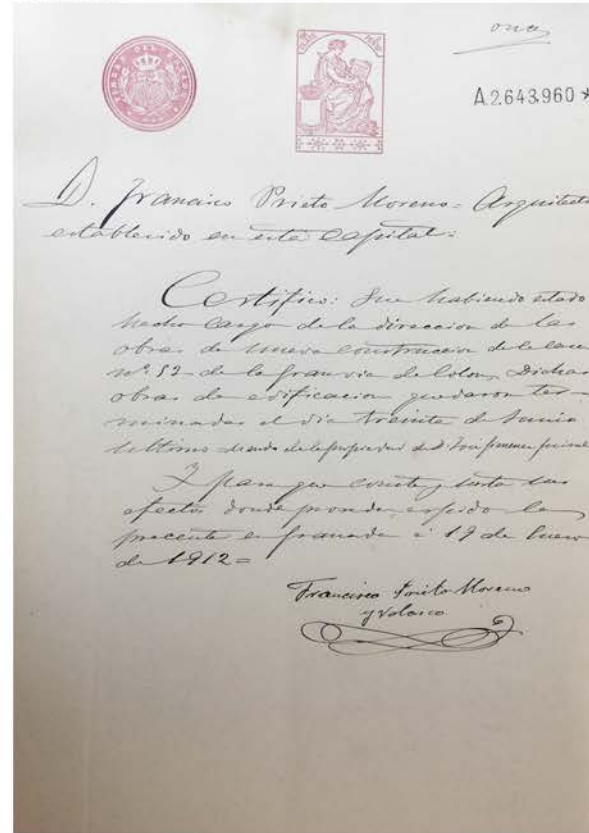 once
A.2.643.960 *
TIMBRE DEL ESTADO
D. Francisco Prieto Moreno = Arquitecto
establecido en esta Capital =
Certifico: Que habiendo estado
hecho cargo de la direccion de las
obras de nueva construccion de la casa
nº. 52 de la Gran via de Colon, Dichas
obras de edificacion quedaron ter-
minadas el dia treinta de Junio
ultimo siendo de la propiedad de D. José Jimenez
Y para que conste y surta sus
efectos donde proceda expido la
presente en Granada á 19 de Enero
de 1912 =
Francisco Prieto Moreno
y Velasco